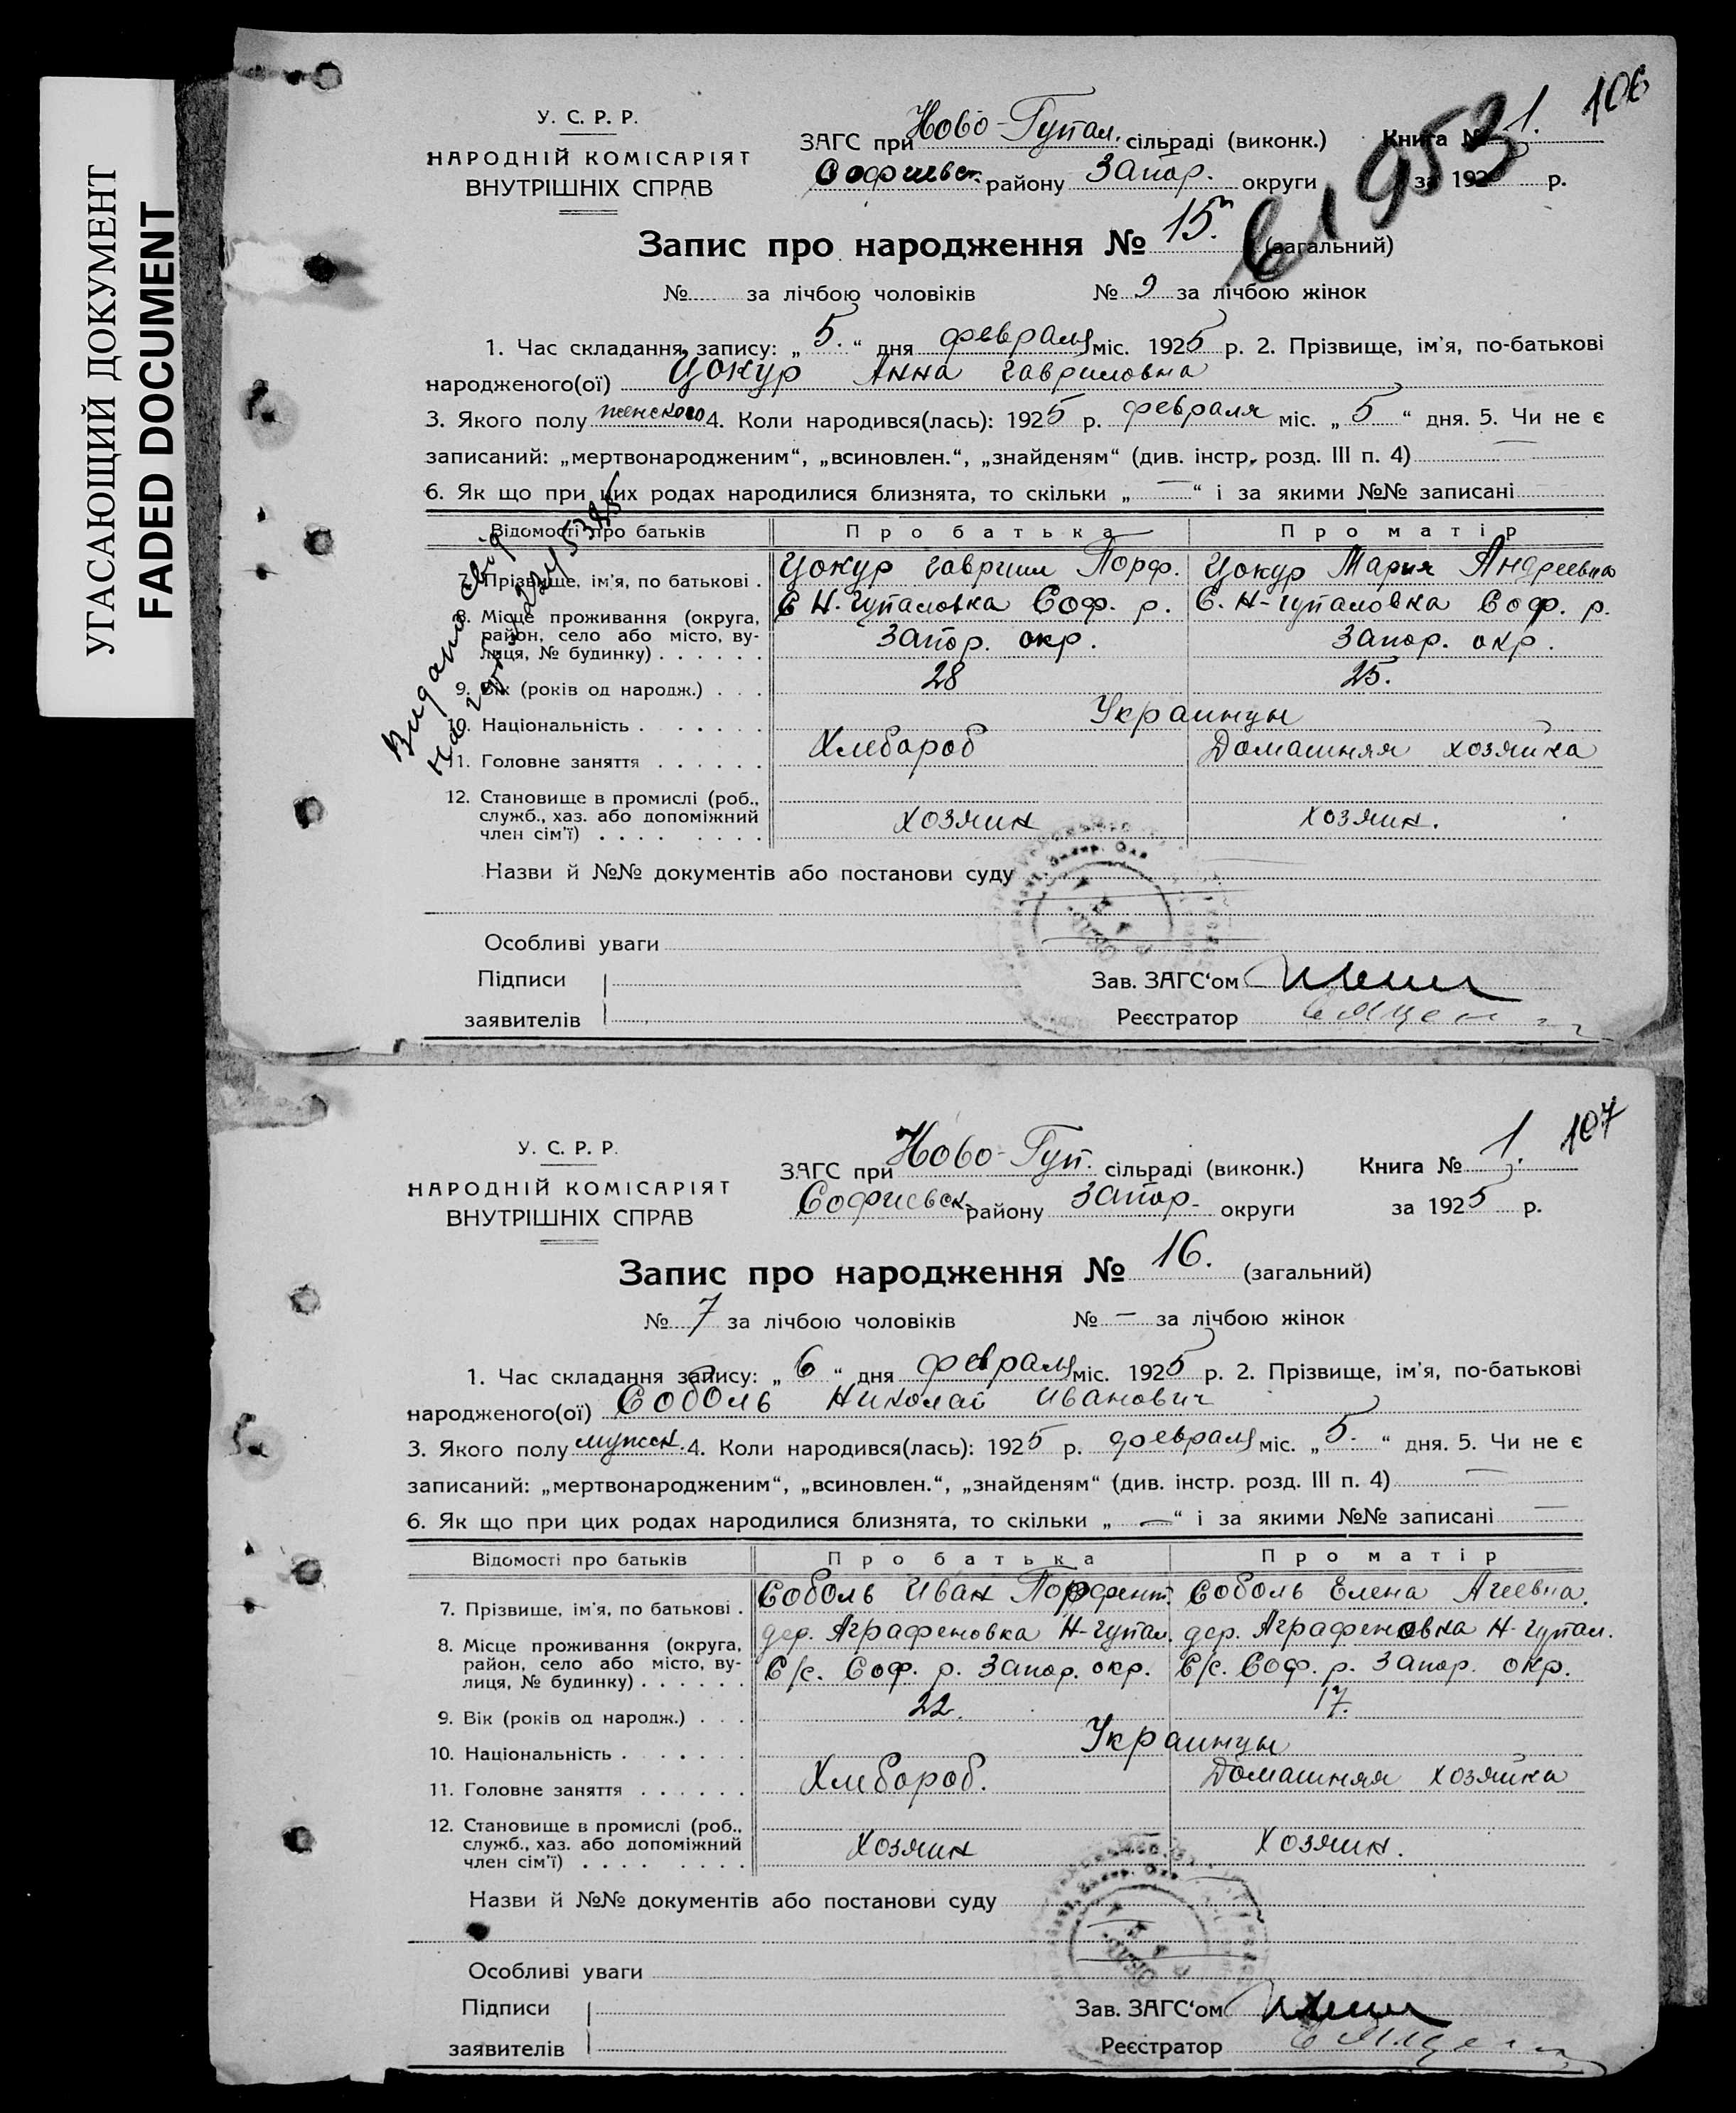 УГАСАЮЩИЙ ДОКУМЕНТ
FADED DOCUMENT
106
У. С. Р. Р.
НАРОДНІЙ КОМІСАРІЯТ
ВНУТРІШНІХ СПРАВ
ЗАГС при Ново-Гупал. сільраді (виконк.) Книга № 1.
Софиевск. району Запор. округи за 192 р.
953
Запис про народження № 15. (загальний)
№ за лічбою чоловіків № 9 за лічбою жінок
1. Час складання запису: „ 5. “ дня февраля міс. 1925 р. 2. Прізвище, ім'я, по-батькові
народженого(ої) Цокур Анна Гавриловна
3. Якого полу женского 4. Коли народився(лась): 1925 р. февраля міс. „ 5 “ дня. 5. Чи не є
записаний: „мертвонародженим“, „всиновлен.“, „знайденям“ (див. інстр. розд. III п. 4) —
6. Як що при цих родах народилися близнята, то скільки „ — “ і за якими №№ записані
Видано свід
Відомості про батьків Про батька Про матір
7. Прізвище, ім'я, по батькові . Цокур Гавриил Порф. Цокур Мария Андреевна
8. Місце проживання (округа, С Н-Гупаловка Соф. р. С. Н-Гупаловка Соф. р.
район, село або місто, ву-
лиця, № будинку) . . . . . . Запор. окр. Запор. окр.
9. Вік (років од народж.) . . . 28 25.
10. Національність . . . . . . . Украинцы
11. Головне заняття . . . . . . Хлебороб Домашняя хозяйка
12. Становище в промислі (роб.,
служб., хаз. або допоміжний
член сім'ї) . . . . . . . . Хозяин Хозяин.
Назви й №№ документів або постанови суду
Особливі уваги
Підписи Зав. ЗАГС'ом
заявителів Реєстратор
107
У. С. Р. Р.
НАРОДНІЙ КОМІСАРІЯТ
ВНУТРІШНІХ СПРАВ
ЗАГС при Ново-Гуп. сільраді (виконк.) Книга № 1.
Софиевск. району Запор. округи за 1925 р.
Запис про народження № 16. (загальний)
№ 7 за лічбою чоловіків № — за лічбою жінок
1. Час складання запису: „ 6 “ дня февраля міс. 1925 р. 2. Прізвище, ім'я, по-батькові
народженого(ої) Соболь Николай Иванович
3. Якого полу мужск. 4. Коли народився(лась): 1925 р. февраля міс. „ 5. “ дня. 5. Чи не є
записаний: „мертвонародженим“, „всиновлен.“, „знайденям“ (див. інстр. розд. III п. 4) —
6. Як що при цих родах народилися близнята, то скільки „ — “ і за якими №№ записані —
Відомості про батьків Про батька Про матір
7. Прізвище, ім'я, по батькові . Соболь Иван Порфент. Соболь Елена Агеевна.
8. Місце проживання (округа, дер. Аграфеновка Н-Гупал. дер. Аграфеновка Н-Гупал.
район, село або місто, ву-
лиця, № будинку) . . . . . . С/с. Соф. р. Запор. окр. С/с. Соф. р. Запор. окр.
9. Вік (років од народж.) . . . 22. 17.
10. Національність . . . . . . . Украинцы
11. Головне заняття . . . . . . Хлебороб. Домашняя хозяйка
12. Становище в промислі (роб.,
служб., хаз. або допоміжний
член сім'ї) . . . . . . . . Хозяин Хозяин.
Назви й №№ документів або постанови суду
Особливі уваги
Підписи Зав. ЗАГС'ом
заявителів Реєстратор